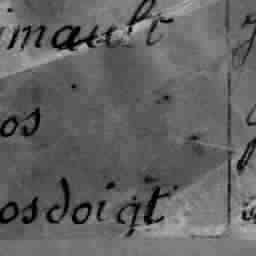 imault
os
osdoigt